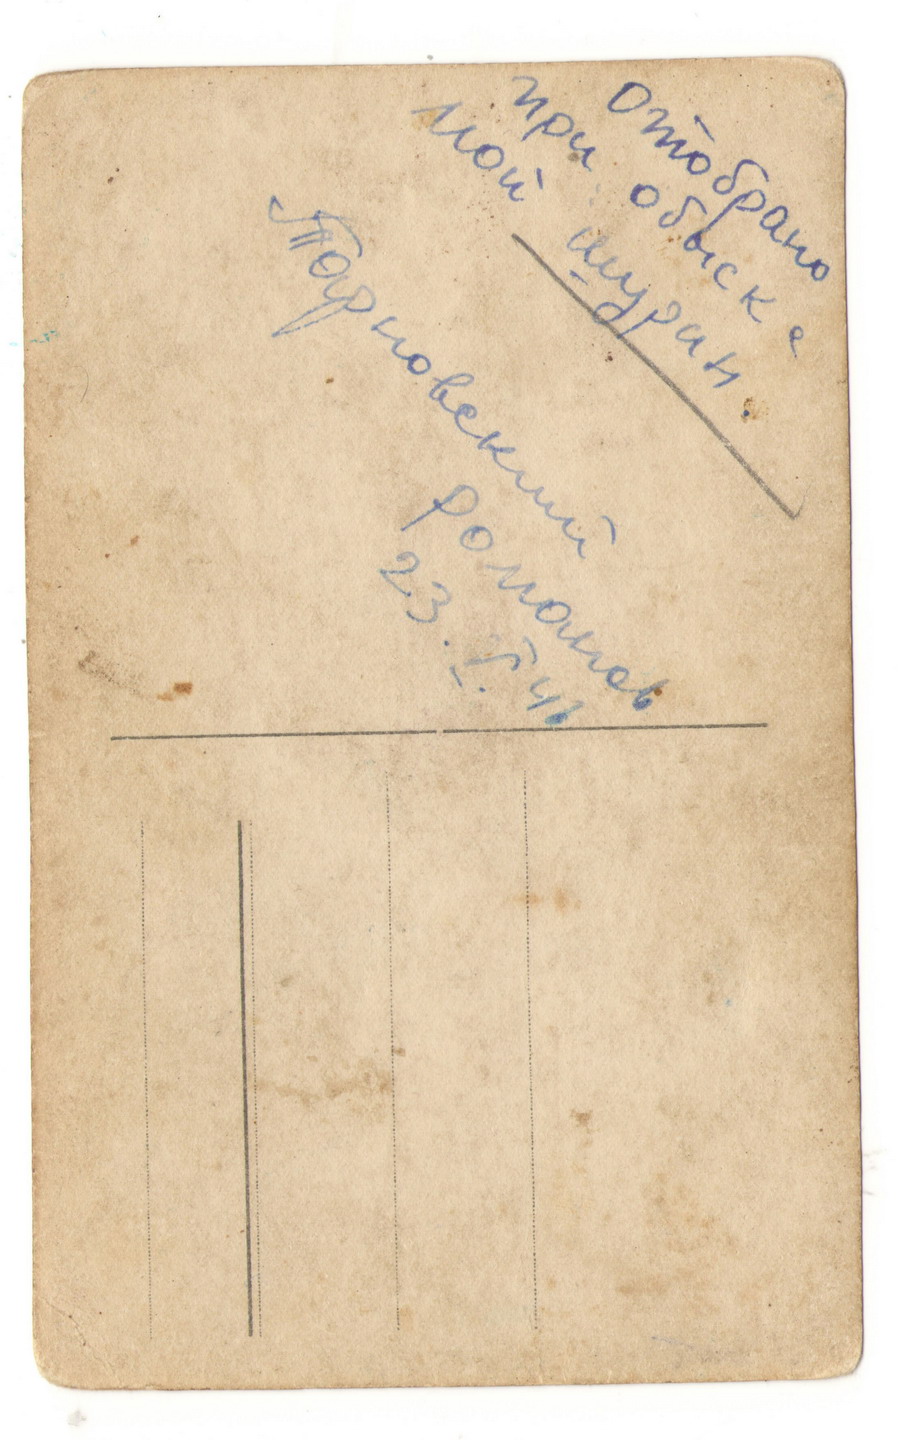 Отобрано
при обыске
мой шурин.
Тарновский
Романов
23.I.46